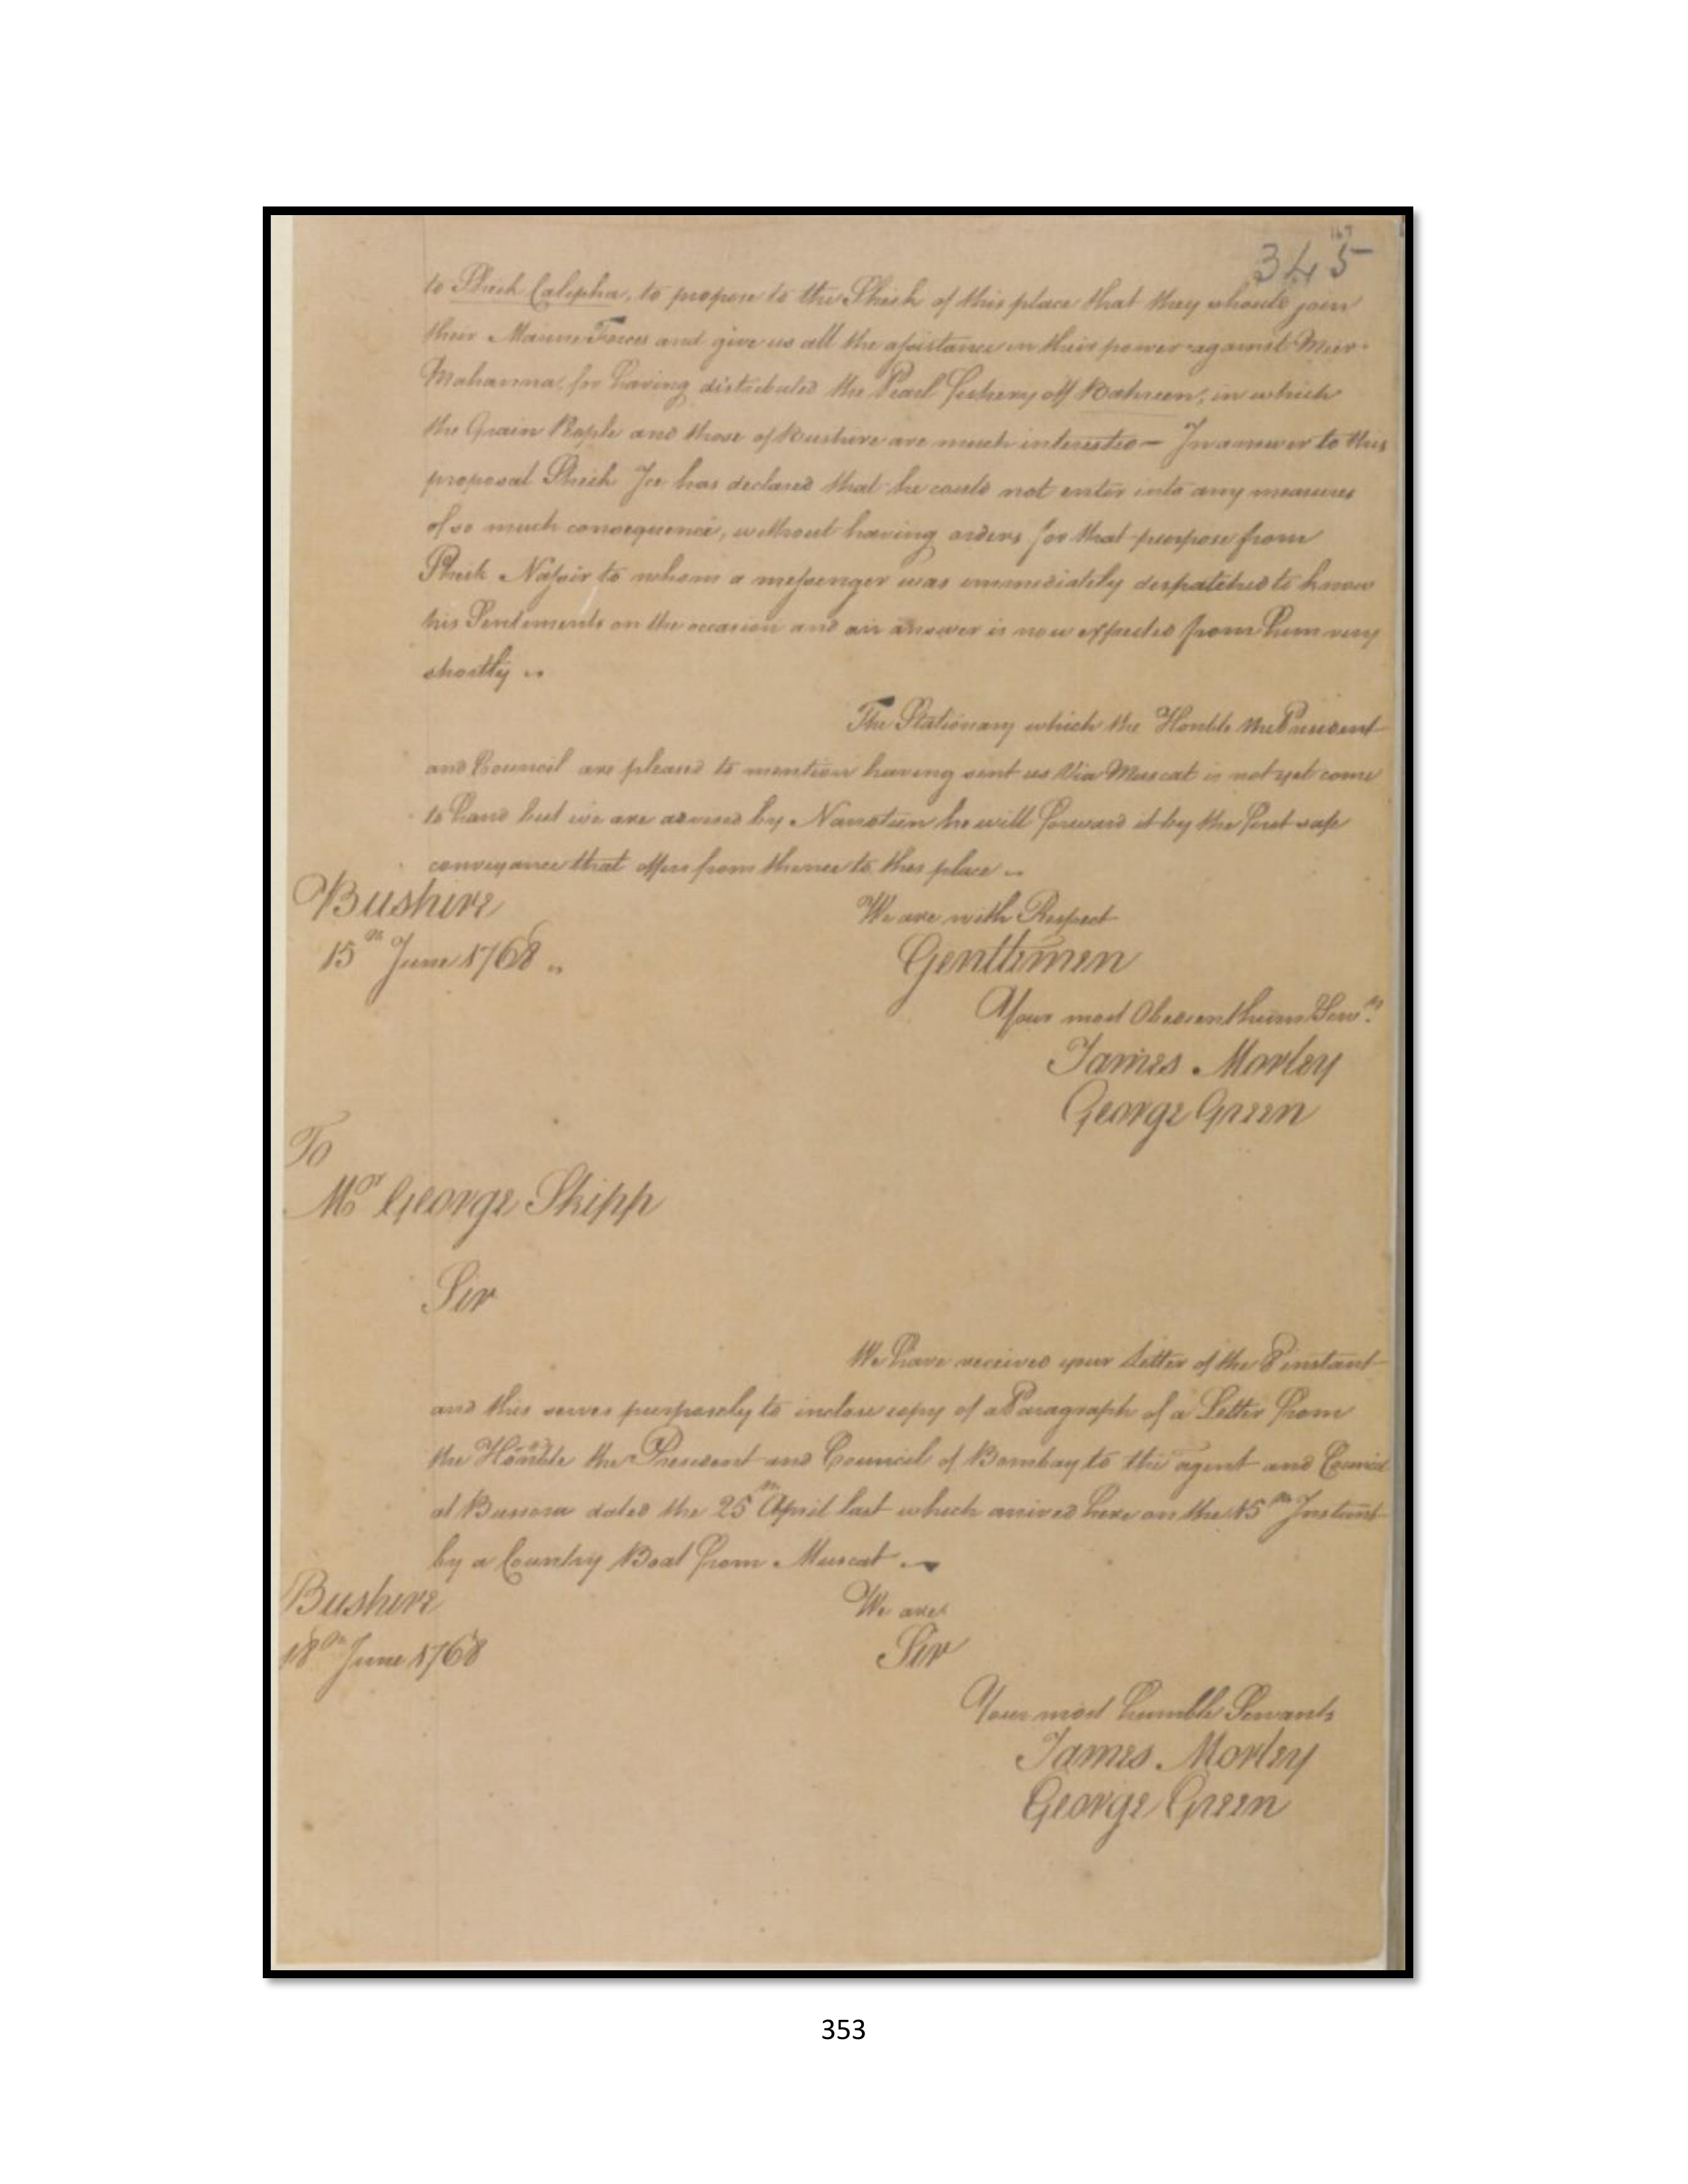 345
to Sheik Calipha, to propose to the Sheik of this place that they should join
their Marine Forces and give us all the assistance in their power against Meer
Mahanna, for having disturbed the Pearl Fishery off Bahreen, in which
the Grain People and those of Bushire are much interested— In answer to this
proposal Sheik Ice has declared that he could not enter into any measures
of so much consequence, without having orders for that purpose from
Sheik Nassir to whom a messenger was immediately despatched to know
his Sentiments on the occasion and an answer is now expected from him very
shortly
The Stationary which the Honble the President
and Council are pleased to mention having sent us Via Muscat is not yet come
to hand but we are advised by he will forward it by the first safe
conveyance that offers from thence to this place
Bushire
We are with Respect
15th June 1768
Gentlemen
Your most Obedient hum Serv.ts
James Morley
George Green
To
Mr George Skipp
Sir
We have received your Letter of the 8 instant
and this serves purposely to inclose copy of a Paragraph of a Letter from
the Honble the President and Council of Bombay to the agent and Council
at Bussora dated the 25th April last which arrived here on the 15th Instant
by a Country Boat from Muscat
Bushire
We are
18th June 1768
Sir
Your most humble Servants
James Morley
George Green
353